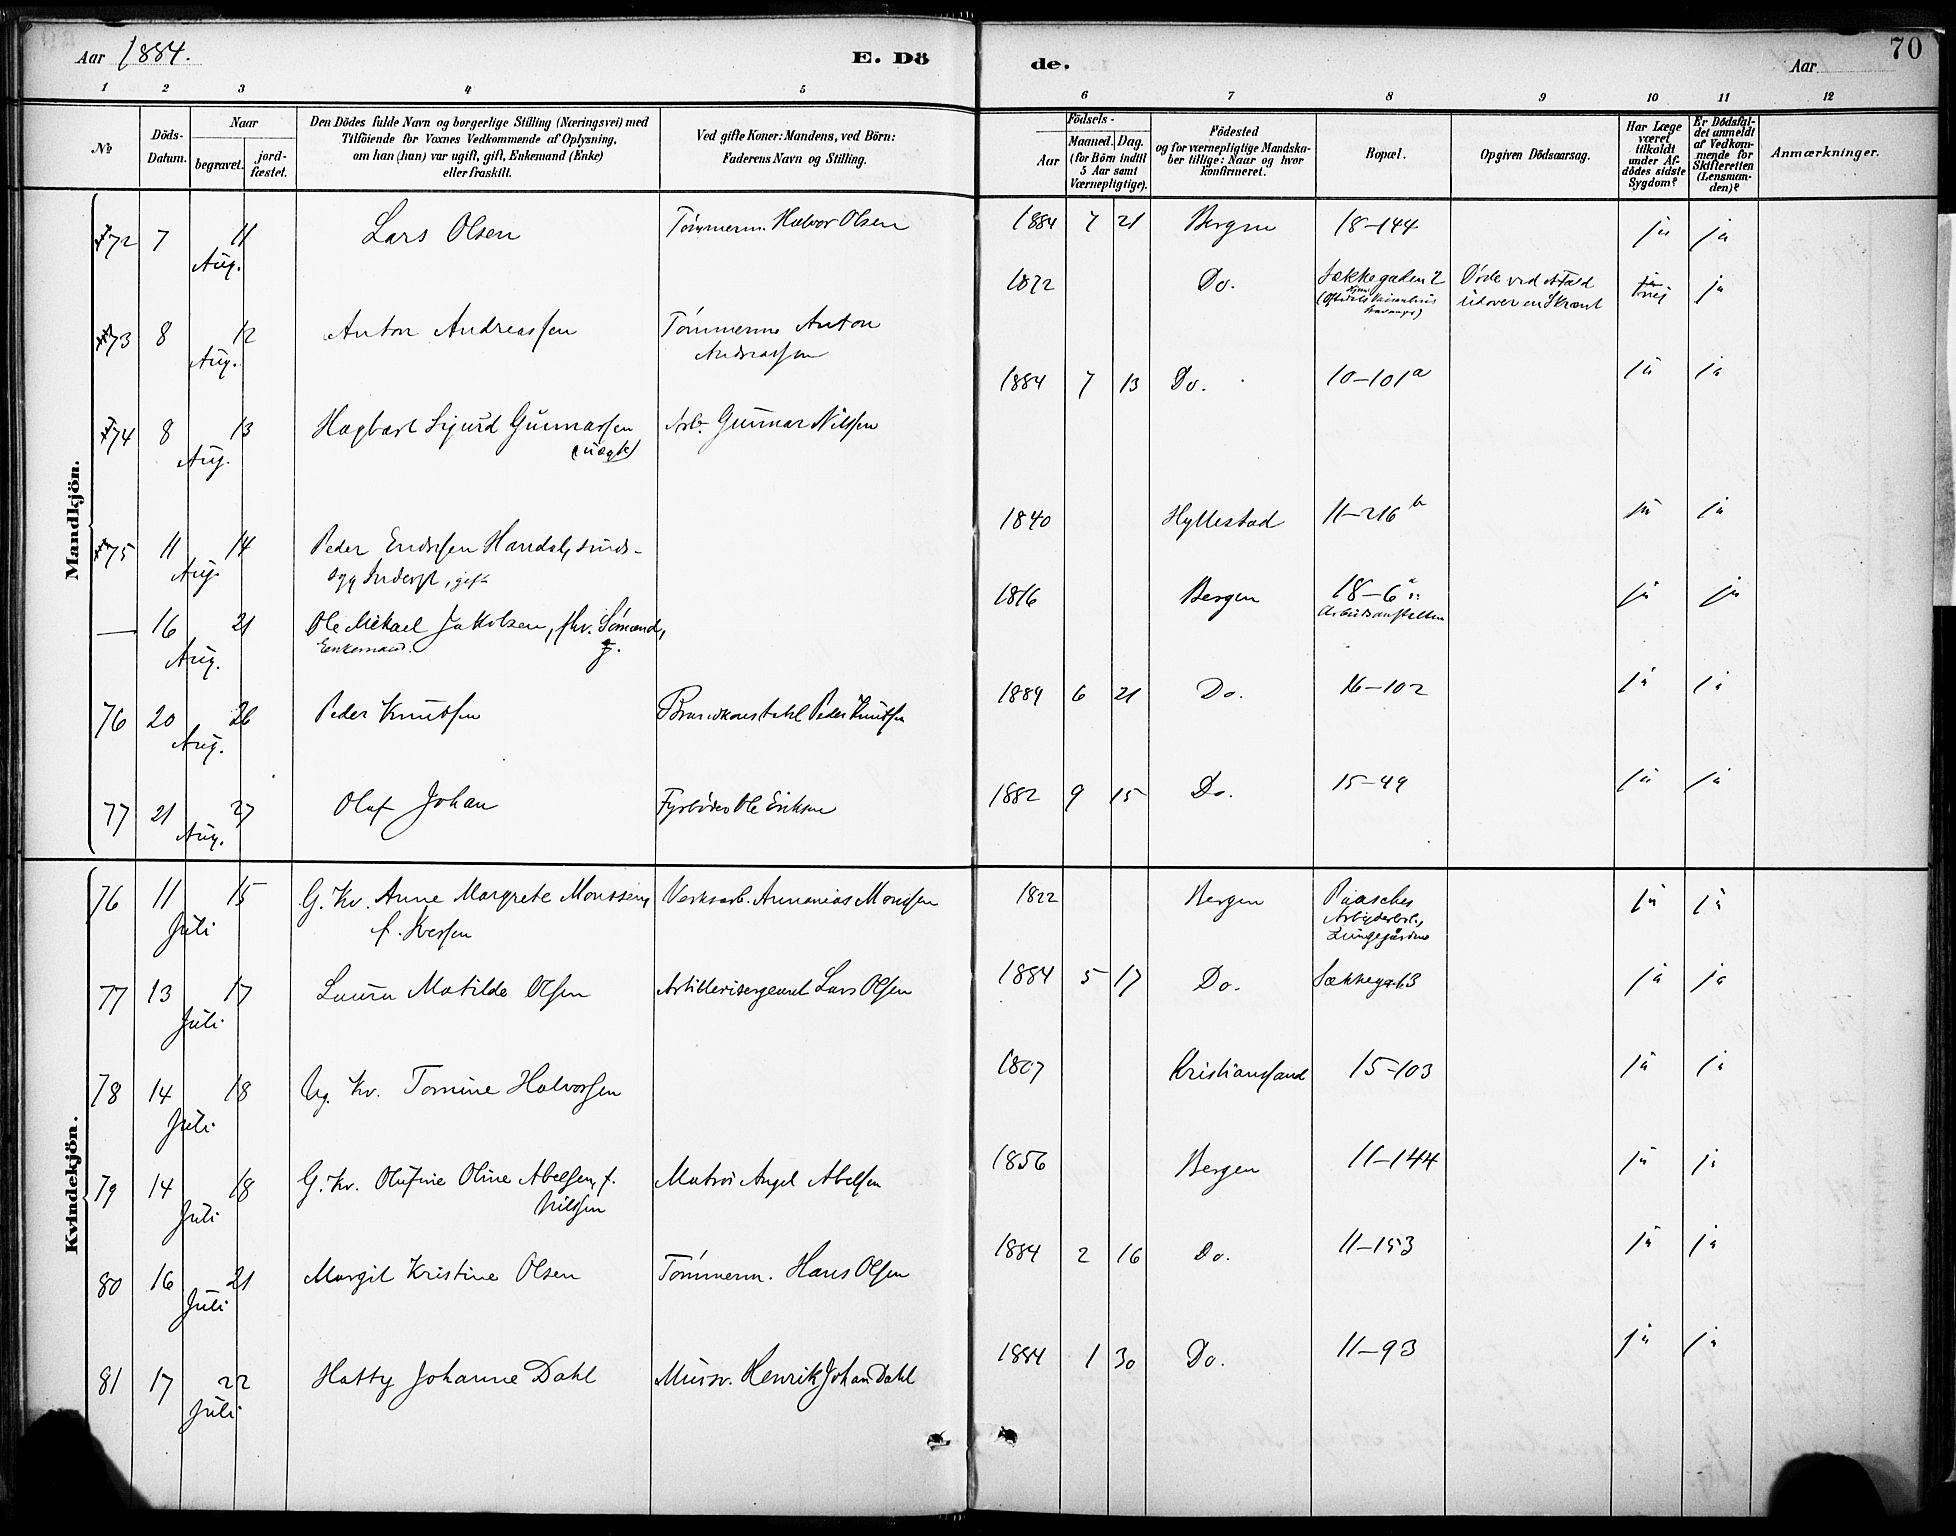 Aar 1884.
E. Dö
de.
Aar
70
1 2 3 4 5 6 7 8 9 10 11 12
No
Döds-Datum.
Naar
begravet.
jord-fæstet.
Den Dödes fulde Navn og borgerlige Stilling (Næringsvei) med
Tilföiende for Voxnes Vedkommende af Oplysning,
om han (hun) var ugift, gift, Enkemand (Enke)
eller fraskilt.
Ved gifte Koner: Mandens, ved Börn:
Faderens Navn og Stilling.
Födsels-
Aar
Maaned. Dag.
(for Börn indtil
5 Aar samt
Værnepligtige).
Födested
og for værnepligtige Mandska-
ber tillige: Naar og hvor
konfirmeret.
Bopæl.
Opgiven Dödsaarsag.
Har Læge
været
tilkaldt
under Af-
dödes sidste
Sygdom?
Er Dödsfal-
det anmeldt
af Vedkom-
mende for
Skifteretten
(Lensman-
den)?
Anmærkninger.
Mandkjön.
72 7 11 Aug. Lars Olsen Tømmerm. Halvor Olsen 1884 7 21 Bergen 18-144 ja ja
73 8 12 Aug. Anton Andreassen Tømmerm. Anton
Andreassen 1872 Do. Sækkegaden 2 Døde ved et Fald
udover en Skrænt nei ja
74 8 13 Aug. Hagbart Sigurd Gunnarsen
(uægte) Arb. Gunnar Nilssen 1884 7 13 Do. 10-101a ja ja
75 11 14 Aug. Peder Endresen Handal, sinds-
syg Inderst, gift 1840 Hyllestad 11-216b ja ja
— 16 21 Aug. Ole Mikael Jakobsen, fhv. Sømand,
Enkemand. 1816 Bergen 18-6
Arbeidsanstalten ja ja
76 20 26 Aug. Peder Knudsen Brandkonstabel Peder Knudsen 1884 6 21 Do. 16-102 ja ja
77 21 27 Aug. Olaf Johan Fyrbøder Ole Eriksen 1882 9 15 Do. 15-49 ja ja
Kvindekjön.
76 11 15 Juli G. Kv. Anne Margrete Monssen,
f. Iversen Verksarb. Annanias Monssen 1822 Bergen Paasches
Arbeiderbol.,
Lungegården ja ja
77 13 17 Juli Laura Matilde Olsen Artillerisergeant Lars Olsen 1884 5 17 Do. Sækkegt. 3 ja ja
78 14 18 Juli Ug. Kv. Tomine Halvorsen 1807 Kristianssand 15-103 ja ja
79 14 18 Juli G. Kv. Olufine Oline Abelsen, f.
Nilssen Matros Angel Abelsen 1856 Bergen 11-144 ja ja
80 16 21 Juli Margit Kristine Olsen Tømmerm. Hans Olsen 1884 2 16 Do. 11-153 ja ja
81 17 22 Juli Hatty Johanne Dahl Mursv. Henrik Johan Dahl 1884 1 30 Do. 11-93 ja ja